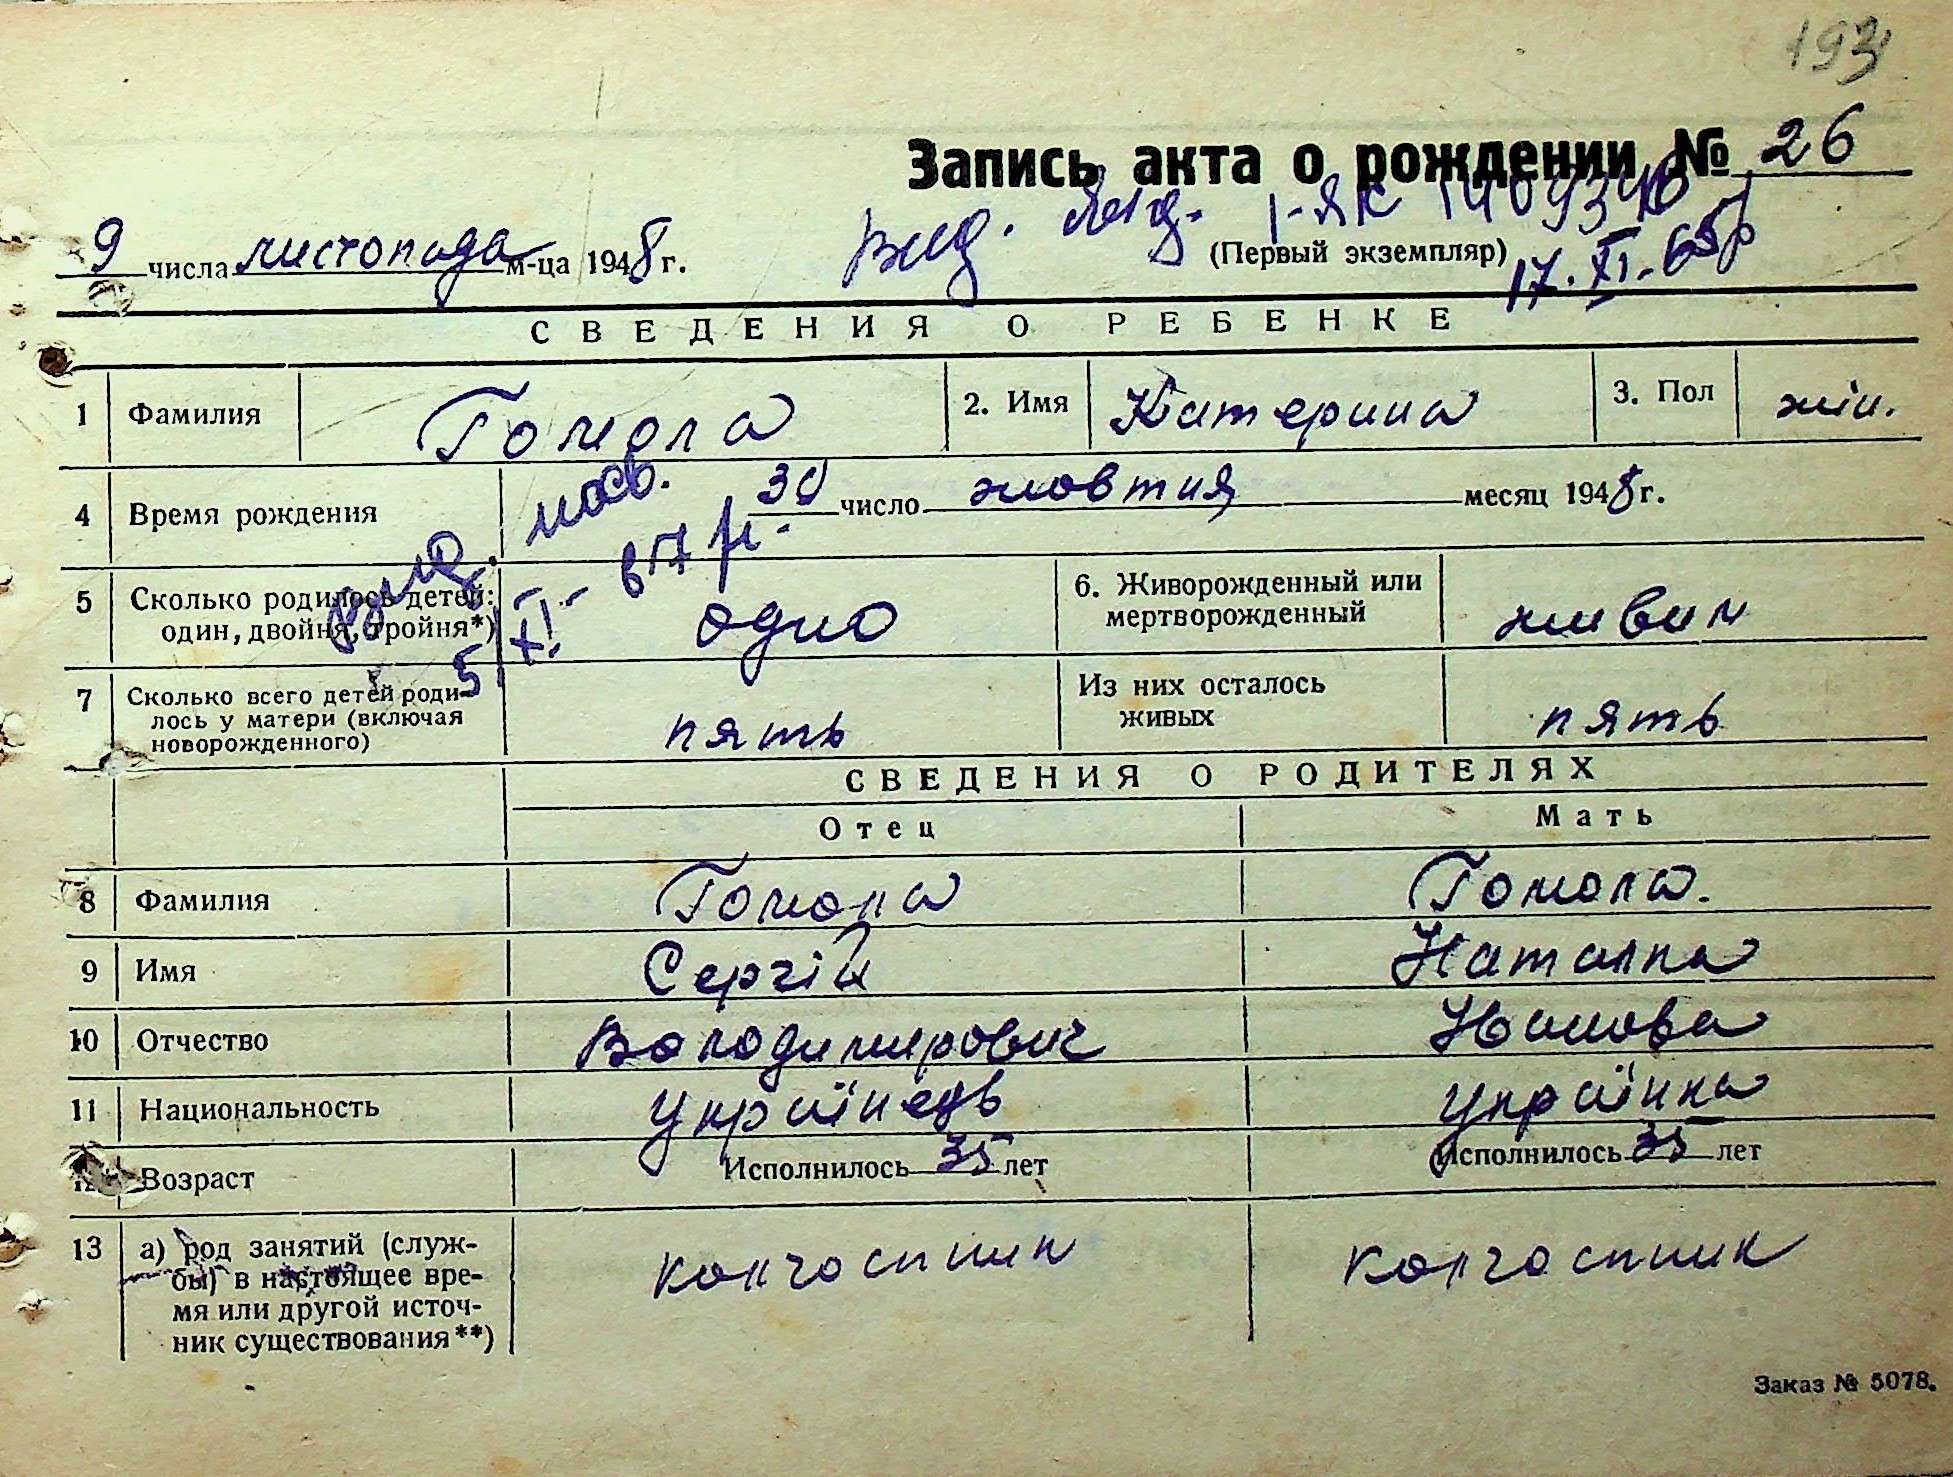 193
Запись акта о рождении № 26
вид. 1-ЯК 1409346
9 числа листопада м-ца 1948 г. (Первый экземпляр) 17.XI.65р
СВЕДЕНИЯ О РЕБЕНКЕ
1 Фамилия Гомола 2. Имя Катерина 3. Пол жін.
4 Время рождения 30 число жовтня месяц 1948 г.
5 Сколько родилось детей: один, двойня, тройня*) одно 6. Живорожденный или мертворожденный живим
5 XI-
7 Сколько всего детей роди-
лось у матери (включая
новорожденного) пять Из них осталось живых пять
СВЕДЕНИЯ О РОДИТЕЛЯХ
Отец Мать
8 Фамилия Гомола Гомола.
9 Имя Сергій Наталка
10 Отчество Володимирович
11 Национальность українець українка
Возраст Исполнилось 35 лет Исполнилось 35 лет
13 а) род занятий (служ-
бы) в настоящее вре-
мя или другой источ-
ник существования**) колгоспник колгоспник
Заказ № 5078.